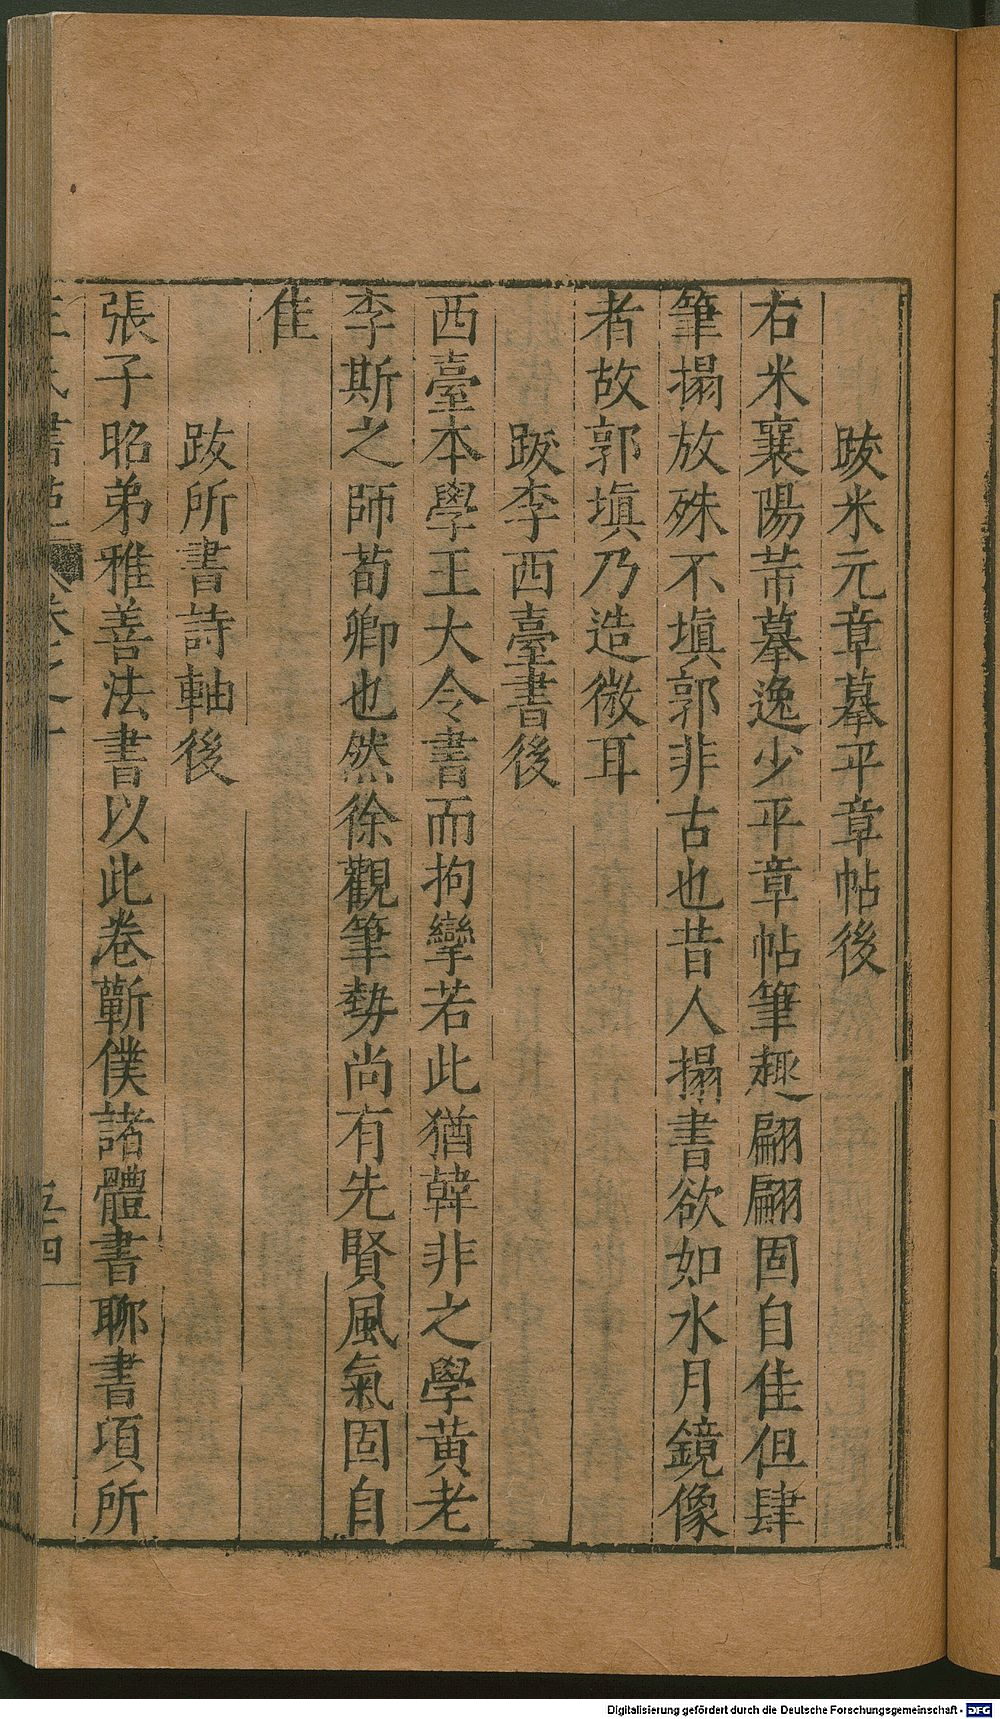 跋米元章摹平章帖後
右米襄陽芾摹逸少平章帖筆趣翩翩固自佳但肆
筆搨放殊不塡郭非古也昔人搨書欲如水月鏡像
者故郭塡乃造微耳
跋李西臺書後
西臺本學王大令書而拘攣若此猶韓非之學黃老
李斯之師荀卿也然徐觀筆勢尚有先賢風氣固自
佳
跋所書詩軸後
張子昭弟雅善法書以此卷蘄僕諸體書聊書項所
Digitalisierung gefördert durch die Deutsche Forschungsgemeinschaft - DFG